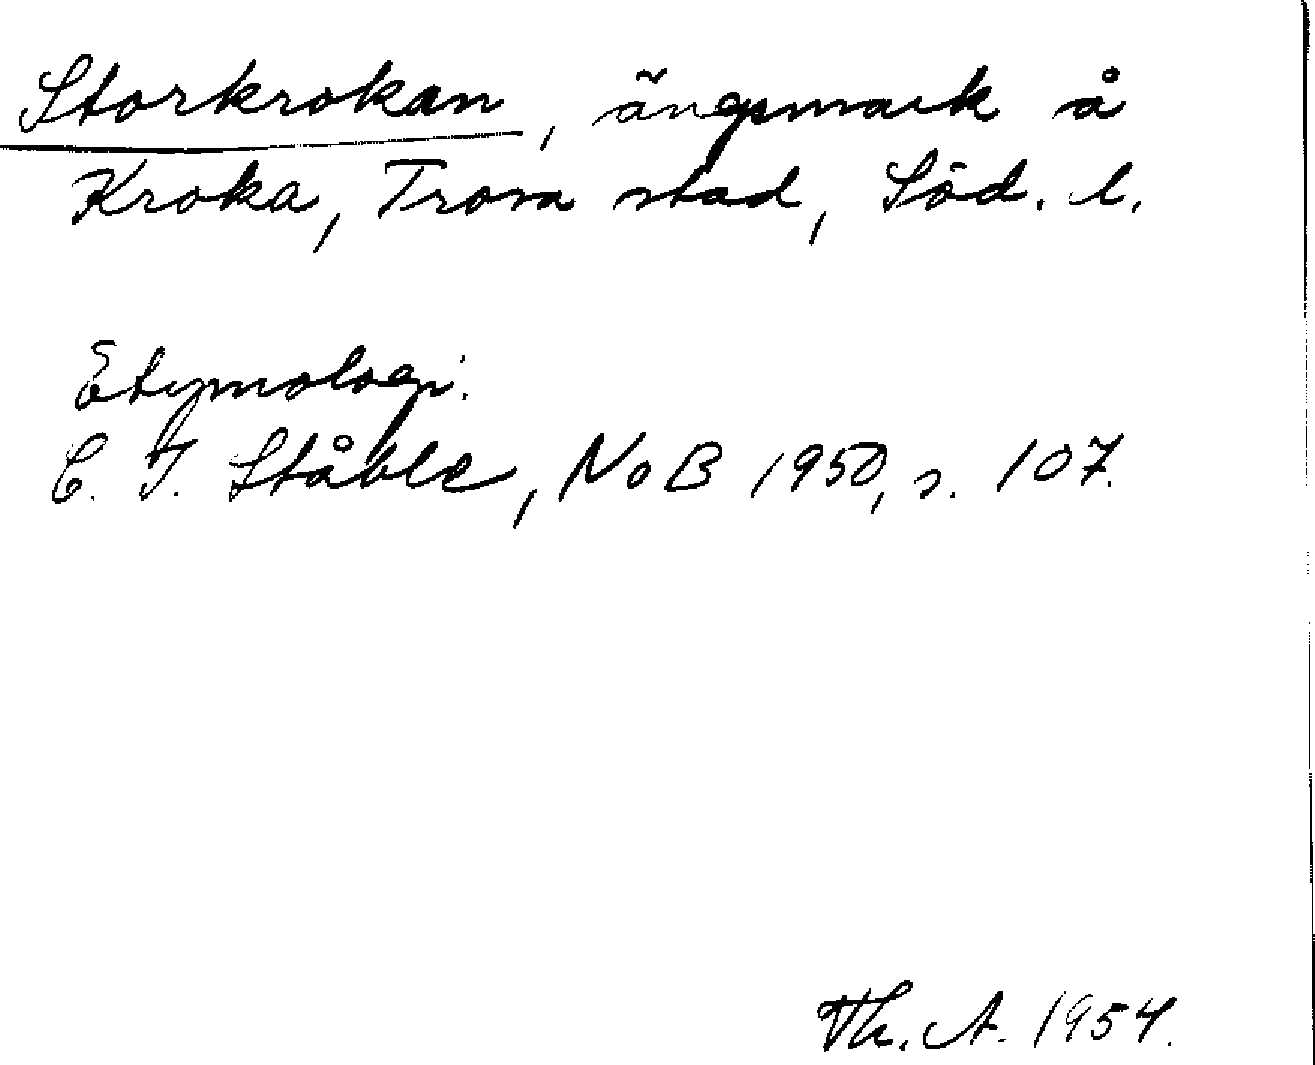 Storkrokan, ängsmark å
Kroka, Trosa stad, Söd. l.
Etymologi:
C. I. Ståhle, NoB 1950, s. 107.
Th. A. 1954.